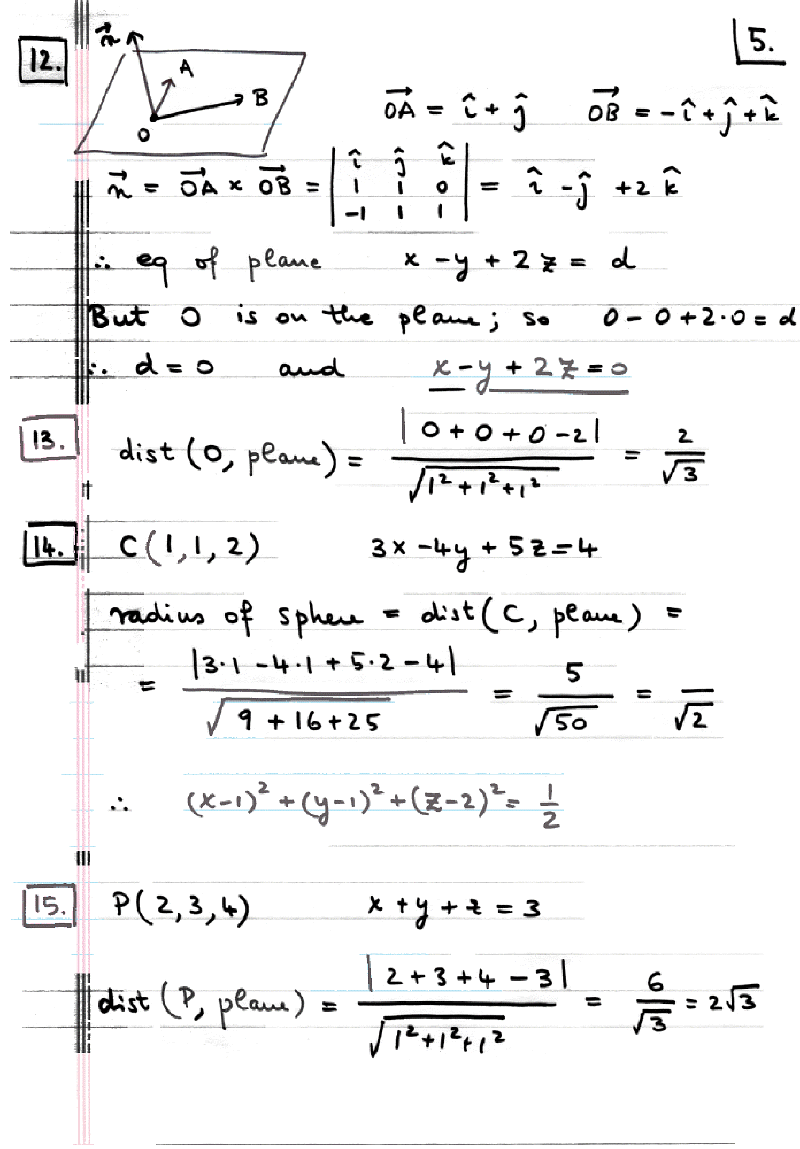 5.
12.
n⃗ A B O
OA⃗ = î + ĵ OB⃗ = -î + ĵ + k̂
n⃗ = OA⃗ × OB⃗ = | î ĵ k̂ |
| 1 1 0 | = î - ĵ + 2 k̂
| -1 1 1 |
∴ eq of plane x - y + 2 z = d
But O is on the plane; so 0 - 0 + 2·0 = d
∴ d = 0 and x - y + 2z = 0
13. dist(O, plane) = |0 + 0 + 0 - 2| / √(1² + 1² + 1²) = 2/√3
14. C(1,1,2) 3x - 4y + 5z = 4
radius of sphere = dist(C, plane) =
= |3·1 - 4·1 + 5·2 - 4| / √(9 + 16 + 25) = 5/√50 = /√2
∴ (x-1)² + (y-1)² + (z-2)² = 1/2
15. P(2,3,4) x + y + z = 3
dist(P, plane) = |2 + 3 + 4 - 3| / √(1² + 1² + 1²) = 6/√3 = 2√3